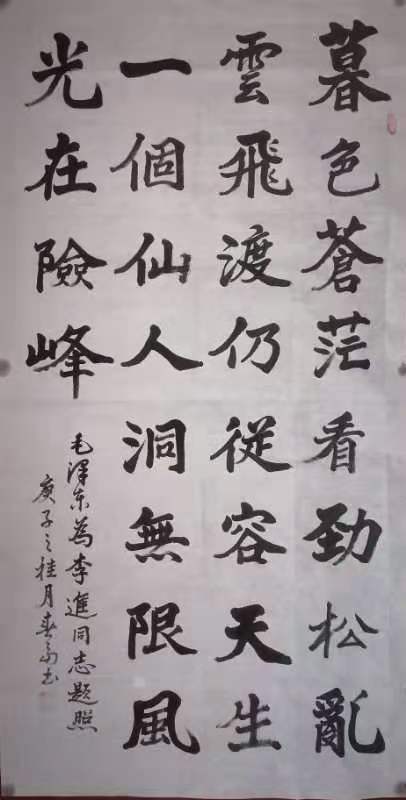 暮色蒼茫看勁松亂
雲飛渡仍從容天生
一個仙人洞無限風
光在險峰
毛澤东為李進同志題照
庚子之桂月春